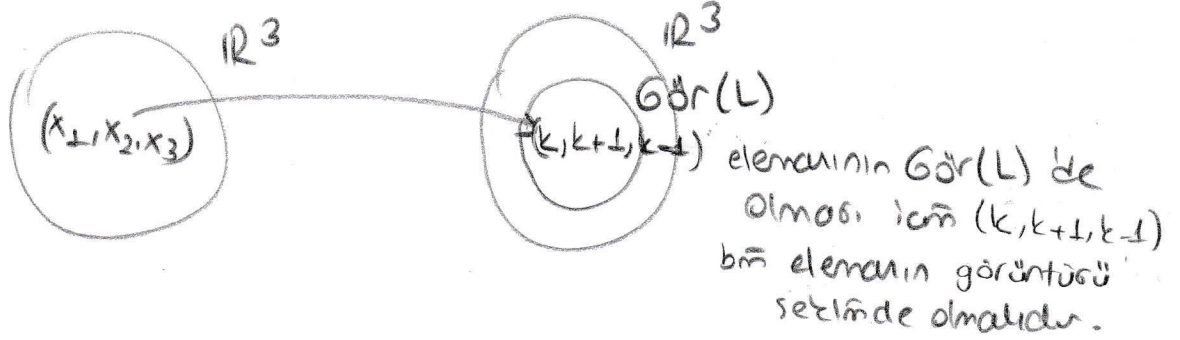 IR³
IR³
Gör(L)
(x₁,x₂,x₃)
(k,k+1,k-1) elemanının Gör(L)'de
olması için (k,k+1,k-1)
bir elemanın görüntüsü
şeklinde olmalıdır.